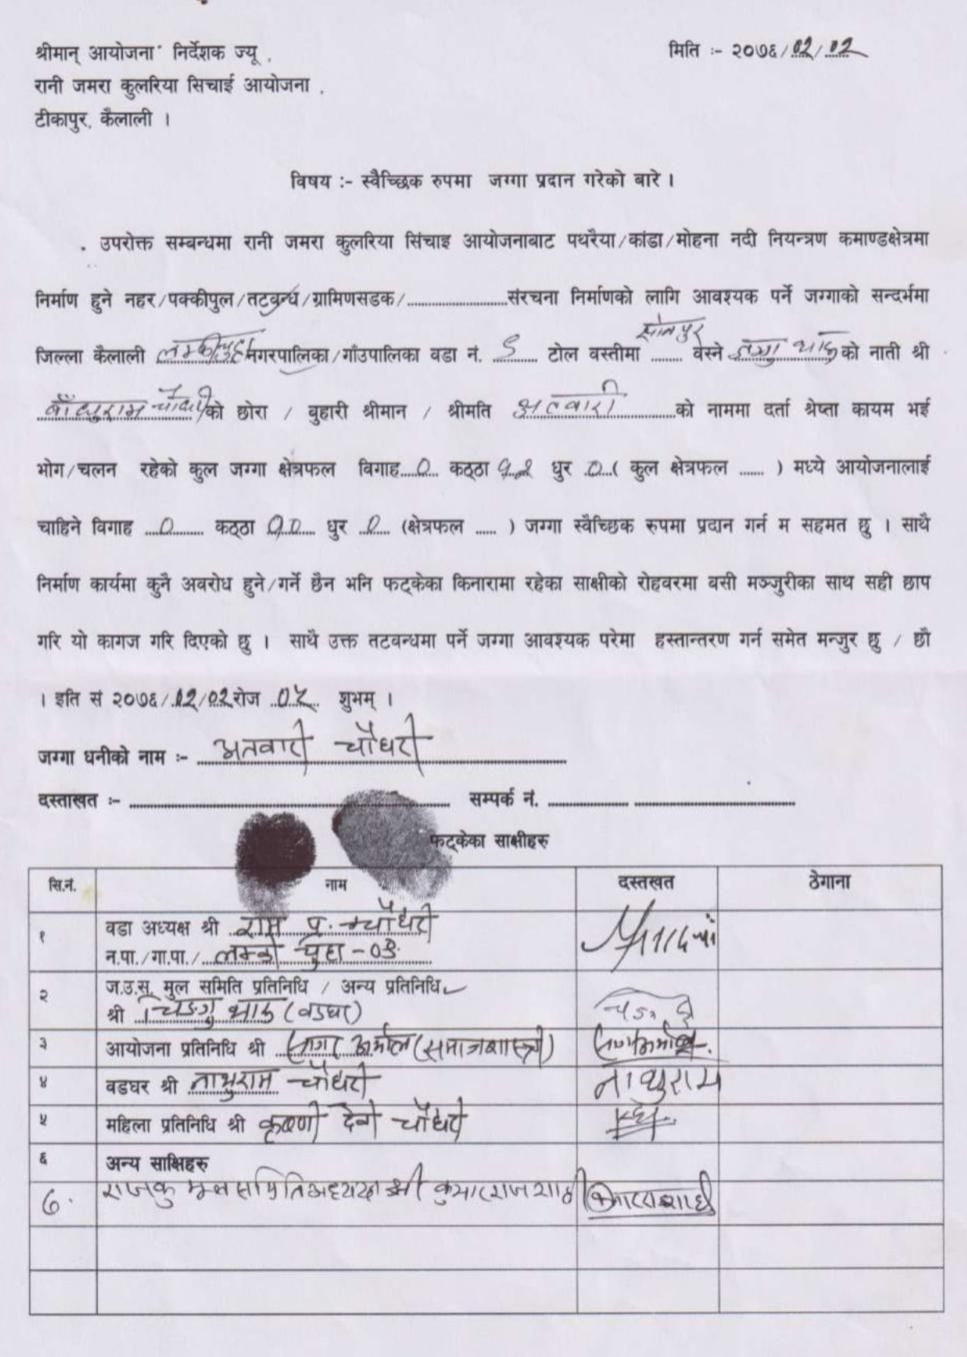 श्रीमान् आयोजना निर्देशक ज्यू ,
मिति :- २०७६/०२/०२
रानी जमरा कुलरिया सिचाई आयोजना ,
टीकापुर, कैलाली ।
विषय :- स्वैच्छिक रुपमा जग्गा प्रदान गरेको बारे ।
उपरोक्त सम्बन्धमा रानी जमरा कुलरिया सिंचाइ आयोजनाबाट पथरैया/कांडा/मोहना नदी नियन्त्रण कमाण्डक्षेत्रमा
निर्माण हुने नहर/पक्कीपुल/तटबन्ध/ग्रामिणसडक/......................संरचना निर्माणको लागि आवश्यक पर्ने जग्गाको सन्दर्भमा
जिल्ला कैलाली लम्कीचुहा नगरपालिका/गाँउपालिका वडा नं. टोल वस्तीमा ....... वस्ने को नाती श्री
चौधरी को छोरा / बुहारी श्रीमान / श्रीमति अतवारी को नाममा दर्ता श्रेष्ता कायम भई
भोग/चलन रहेको कुल जग्गा क्षेत्रफल विगाह 0 कठ्ठा १२ धुर 0 ( कुल क्षेत्रफल ...... ) मध्ये आयोजनालाई
चाहिने विगाह 0 कठ्ठा धुर 0 (क्षेत्रफल ..... ) जग्गा स्वैच्छिक रुपमा प्रदान गर्न म सहमत छु । साथै
निर्माण कार्यमा कुनै अवरोध हुने/गर्ने छैन भनि फट्केका किनारामा रहेका साक्षीको रोहवरमा बसी मञ्जुरीका साथ सही छाप
गरि यो कागज गरि दिएको छु । साथै उक्त तटबन्धमा पर्ने जग्गा आवश्यक परेमा हस्तान्तरण गर्न समेत मन्जुर छु / छौ
। इति सं २०७६/०२/०२ रोज ०५ शुभम् ।
जग्गा धनीको नाम :- अतवारी चौधरी
दस्ताखत :- ........................ सम्पर्क नं. ........................
फट्केका साक्षीहरु
सि.नं. नाम दस्तखत ठेगाना
१ वडा अध्यक्ष श्री राम प्र. चौधरी
न.पा./गा.पा./ लम्की चुहा -०३
२ ज.उ.सू. मुल समिति प्रतिनिधि / अन्य प्रतिनिधि
श्री चिङगु थारु (वडघर)
३ आयोजना प्रतिनिधि श्री (समाजशास्त्री)
४ वडघर श्री नाथुराम चौधरी नाथुराम
५ महिला प्रतिनिधि श्री कृष्णी देवी चौधरी
६ अन्य साक्षिहरु
७. राजकु मूल समिति अध्यक्ष श्री कुमारराज शाही